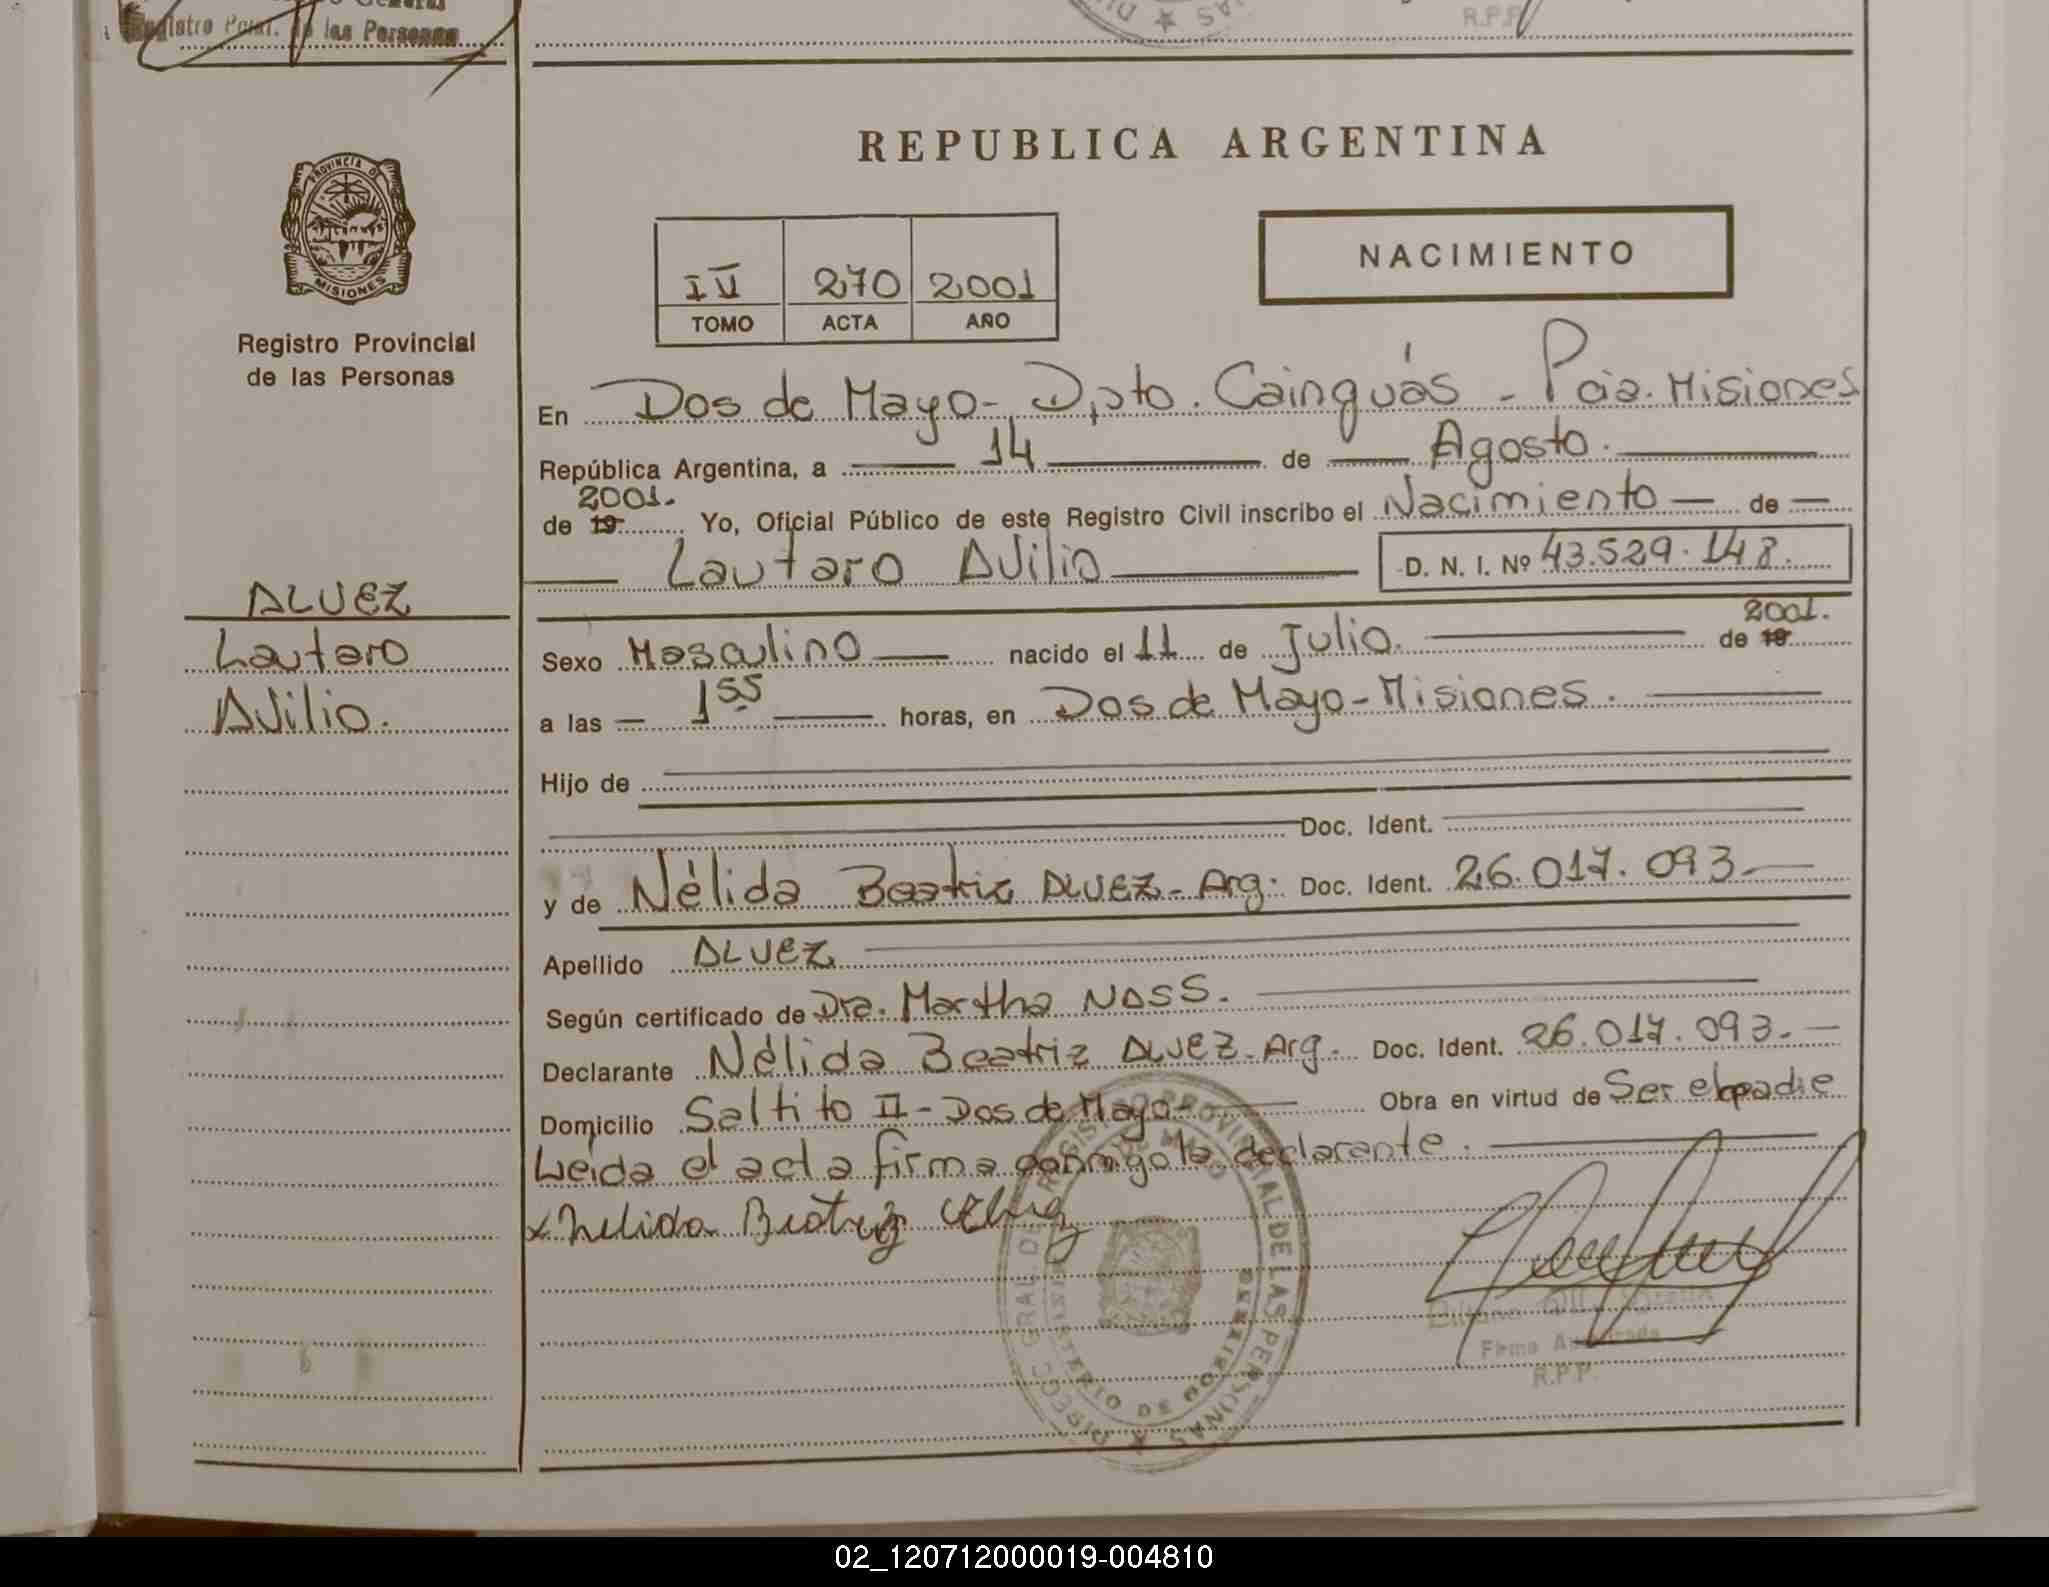 Registro Provincial de las Personas
R.P.P.
PROVINCIA DE
MISIONES
Registro Provincial
de las Personas
ALVEZ
Lautaro
Avilio.
REPUBLICA ARGENTINA
NACIMIENTO
IV 270 2001
TOMO ACTA AÑO
En Dos de Mayo - Dpto. Cainguás - Pcia. Misiones
República Argentina, a 14 de Agosto.
2001.
de 19 Yo, Oficial Público de este Registro Civil inscribo el Nacimiento de
Lautaro Avilio D. N. I. Nº 43.529.148.
2001.
Sexo Masculino nacido el 11 de Julio. de 19
a las 1 55 horas, en Dos de Mayo - Misiones.
Hijo de
Doc. Ident.
y de Nélida Beatriz ALVEZ - Arg. Doc. Ident. 26.017.093
Apellido ALVEZ
Según certificado de Dra. Martha NASS.
Declarante Nélida Beatriz ALVEZ - Arg. Doc. Ident. 26.017.093.
Domicilio Saltito II - Dos de Mayo - Obra en virtud de Ser el
Leida el acta firma conmigo la declarante.
x Nelida Beatriz Alvez
DIRECC. GRAL. DEL REGISTRO PROVINCIAL DE LAS PERSONAS
MINISTERIO DE GOBIERNO
Firma Autorizada
R.P.P.
02_120712000019-004810